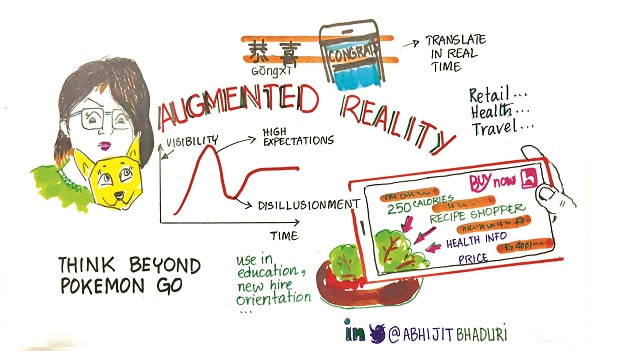 恭喜
Gōngxǐ
CONGRAT
TRANSLATE
IN REAL
TIME
AUGMENTED REALITY
Retail...
Health...
Travel...
VISIBILITY
HIGH
EXPECTATIONS
DISILLUSIONMENT
TIME
BUY now
250 CALORIES
RECIPE SHOPPER
HEALTH INFO
PRICE
THINK BEYOND
POKEMON GO
use in
education,
new hire
orientation
...
in @ABHIJITBHADURI